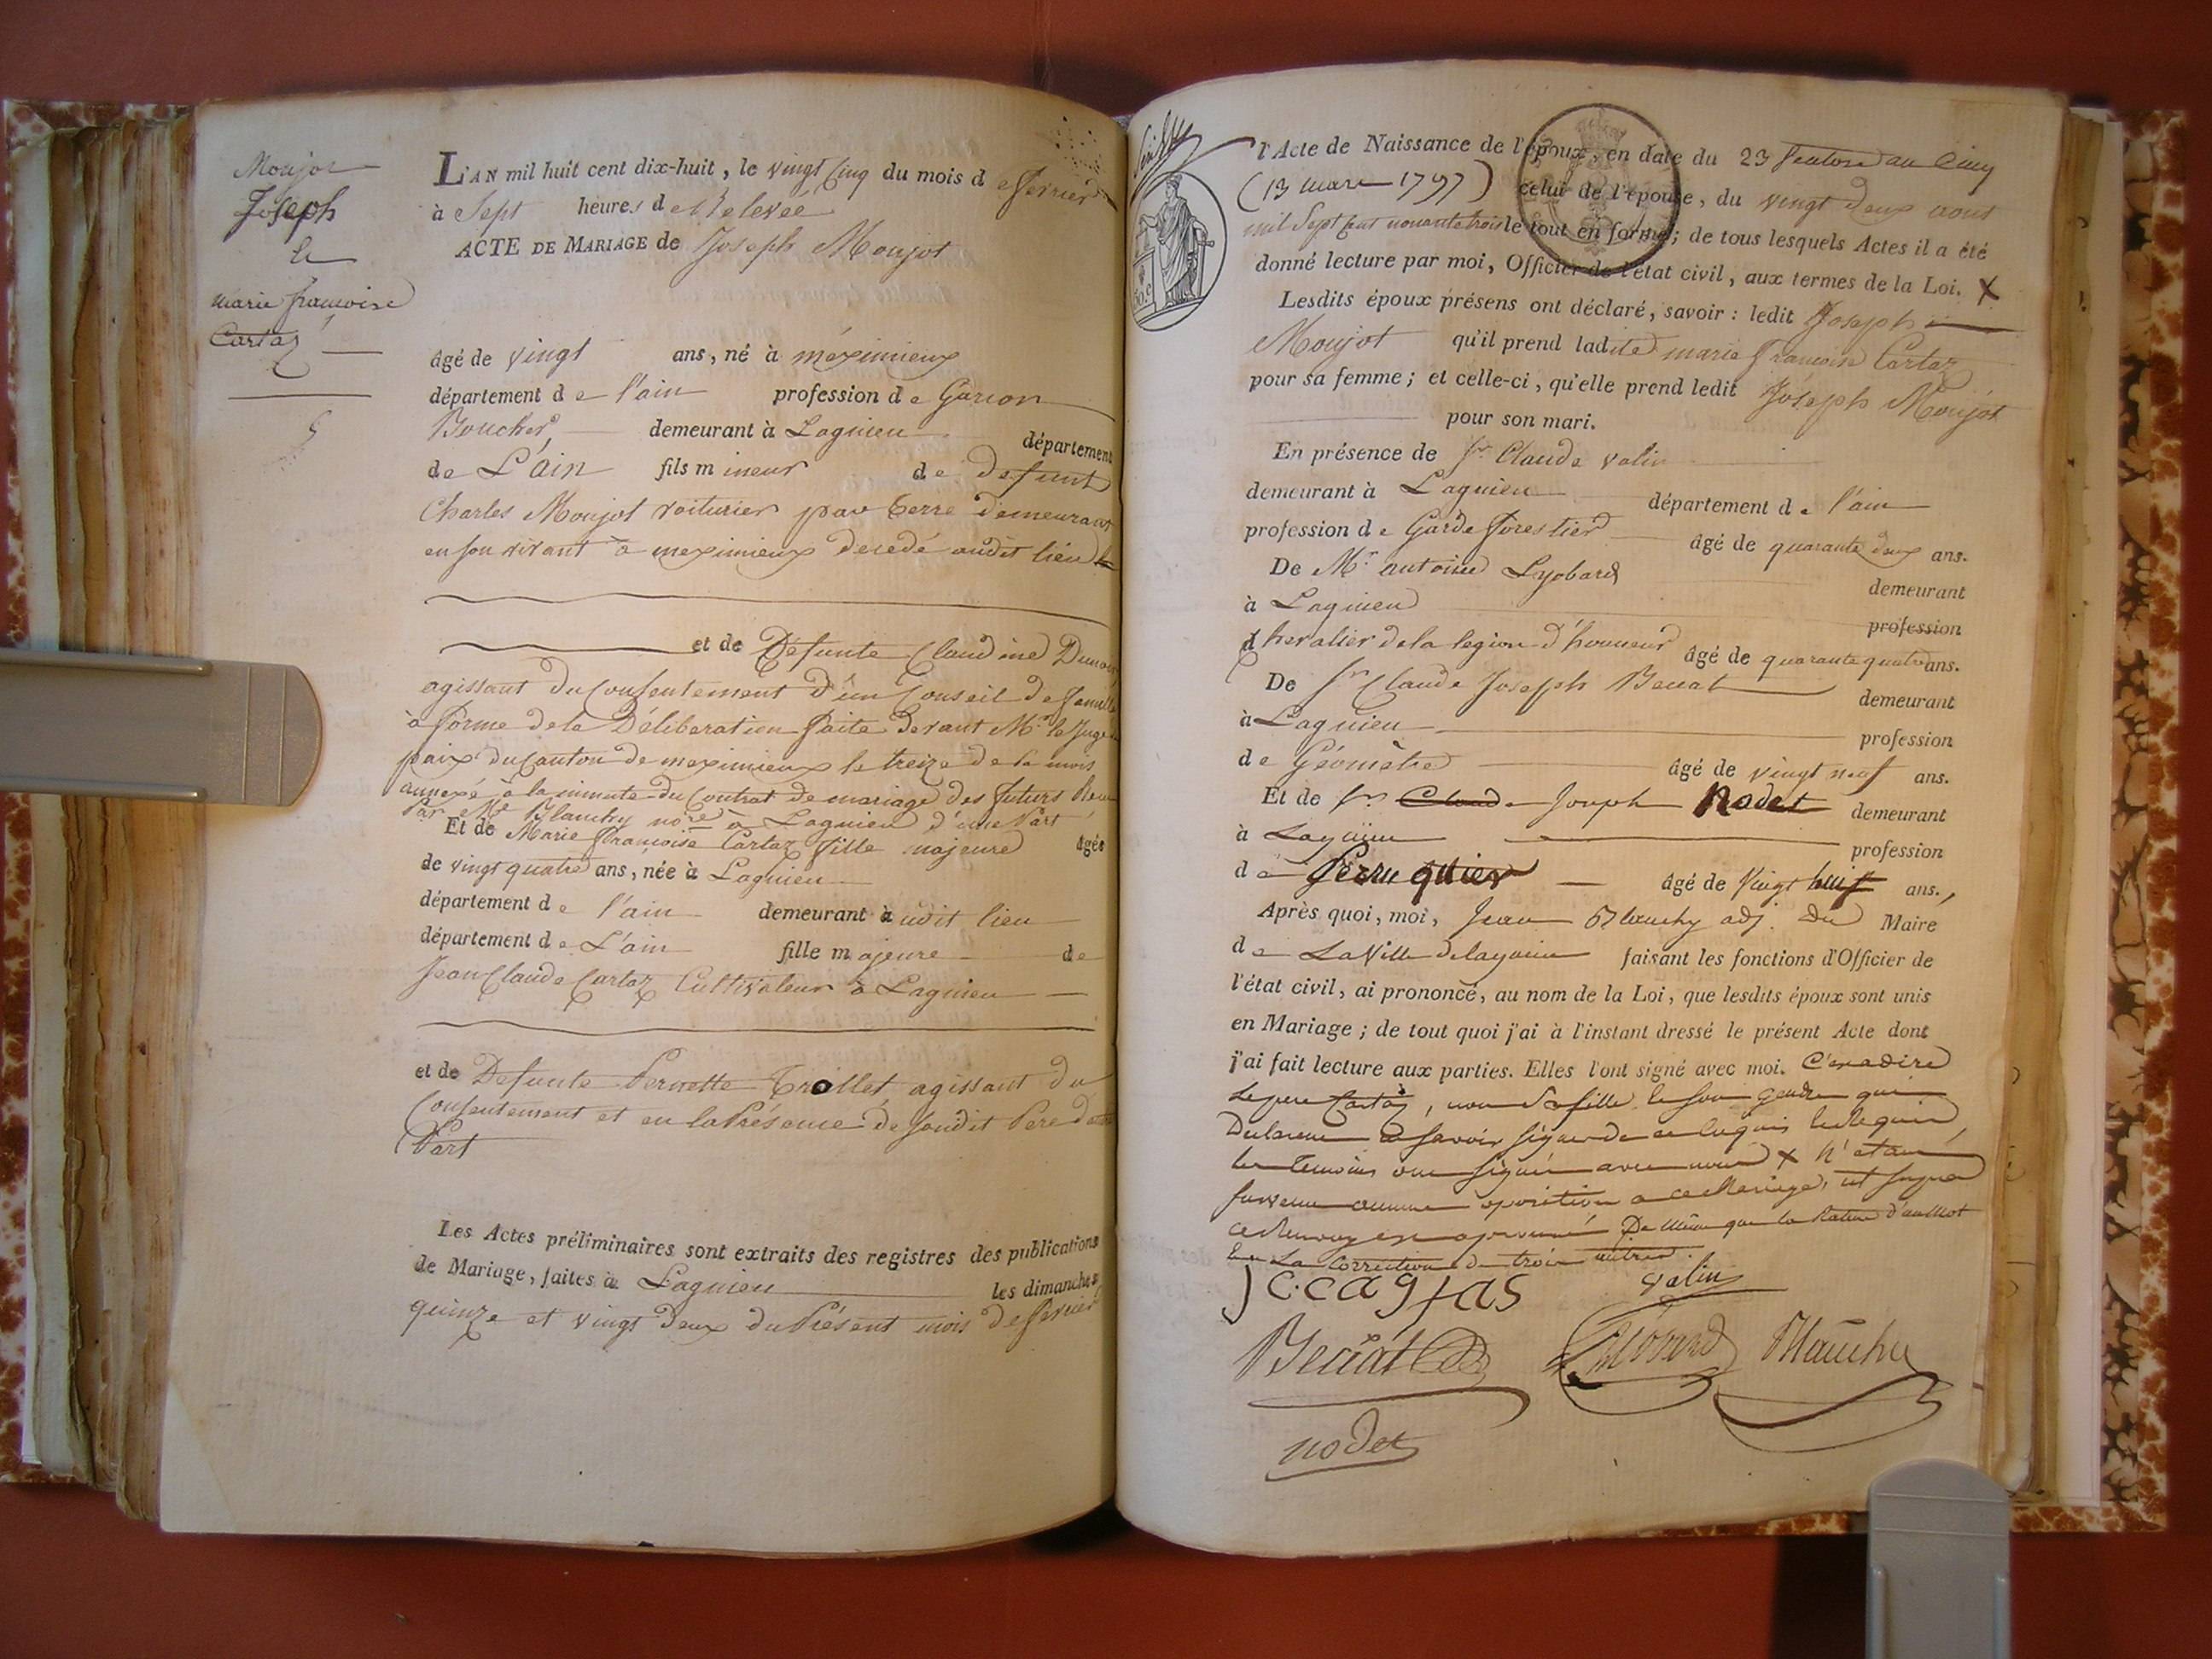 Moujot
Joseph
&
marie francoise
Cartaz
L'AN mil huit cent dix-huit, le vingt Cinq du mois de fevrier
à Sept heures de Relevée
ACTE DE MARIAGE de Joseph Moujot
âgé de vingt ans, né à méximieux
département de l'ain profession de Garcon
Boucher, demeurant à Lagnieu département
de L'ain fils mineur de defunt
Charles Moujot voiturier par terre demeurant
en son vivant à meximieux decedé audit lieu
et de Defunte Claudine
agissant du Consentement d'un Conseil de famille
à forme de la Déliberation faite devant Mr. le Juge de
paix du Canton de meximieux le treize de ce mois
annexé à la minute du Contrat de mariage des futurs Recu
Par Me Blanchy nore à Lagnieu d'une Part
Et de Marie Francoise Cartaz fille majeure âgée
de vingt quatre ans, née à Lagnieu
département de l'ain demeurant audit lieu
département de L'ain fille majeure de
Jean Claude Cartaz Cultivateur à Lagnieu
et de Defunte Pernette Trollet, agissant du
Consentement et en la Présence de Sondit Pere d'autre
Part
Les Actes préliminaires sont extraits des registres des publications
de Mariage, faites à Lagnieu les dimanches
quinze et vingt deux du Présent mois de fevrier
l'Acte de Naissance de l'époux, en date du 23 Ventose an Cinq
(13 mars 1797) celui de l'épouse, du vingt deux aout
mil Sept cent nonante trois le tout en forme; de tous lesquels Actes il a été
donné lecture par moi, Officier de l'état civil, aux termes de la Loi. X
Lesdits époux présens ont déclaré, savoir: ledit Joseph
Moujot qu'il prend ladite marie francoise Cartaz
pour sa femme; et celle-ci, qu'elle prend ledit Joseph Moujot
pour son mari.
En présence de Sr. Claude valin
demeurant à Lagnieu département de l'ain
profession de Garde forestier âgé de quarante deux ans.
De Mr. antoine Lyobard demeurant
à Lagnieu profession
chevalier de la legion d'honneur âgé de quarante quatre ans.
De Sr Claude Joseph Beccat demeurant
à Lagnieu profession
de Géomètre âgé de vingt neuf ans.
Et de Sr Claude Joseph Nodet demeurant
à Lagnieu profession
de Perruquier âgé de Vingt huit ans.,
Après quoi, moi, Jean Blanchy adj. Du Maire
de La Ville de lagnieu faisant les fonctions d'Officier de
l'état civil, ai prononcé, au nom de la Loi, que lesdits époux sont unis
en Mariage; de tout quoi j'ai à l'instant dressé le présent Acte dont
j'ai fait lecture aux parties. Elles l'ont signé avec moi. C'estadire
Le pere Cartaz, non Sa fille & son gendre qui
ont declaré ne savoir signer de ce enquis & requis,
les Temoins ont signé avec nous X N'étant
survenu aucune oposition a ce Mariage,
ce Renvoy est approuvé De même que la Rature d'un Mot
& La Correction de trois autres.
valin
Beccat Lyobard Blanchy
nodet